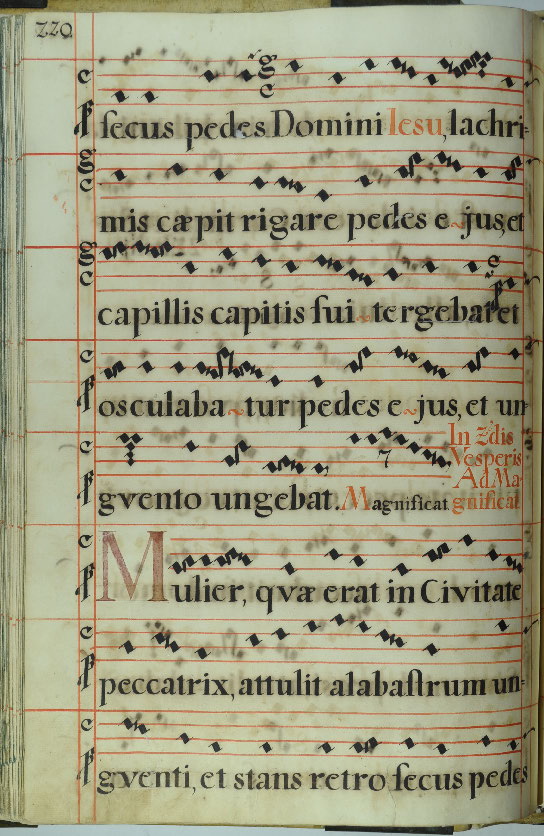 220
secus pedes Domini Iesu, lachri=
mis cæpit rigare pedes e~jus, et
capillis capitis sui~tergebat et
osculaba~tur pedes e~jus, et un=
gvento ungebat. Magnificat
In 2dis
Vesperis
Ad Ma
gnificat
Mulier, qvæ erat in Civitate
peccatrix, attulit alabastrum un=
gventi, et stans retro secus pedes